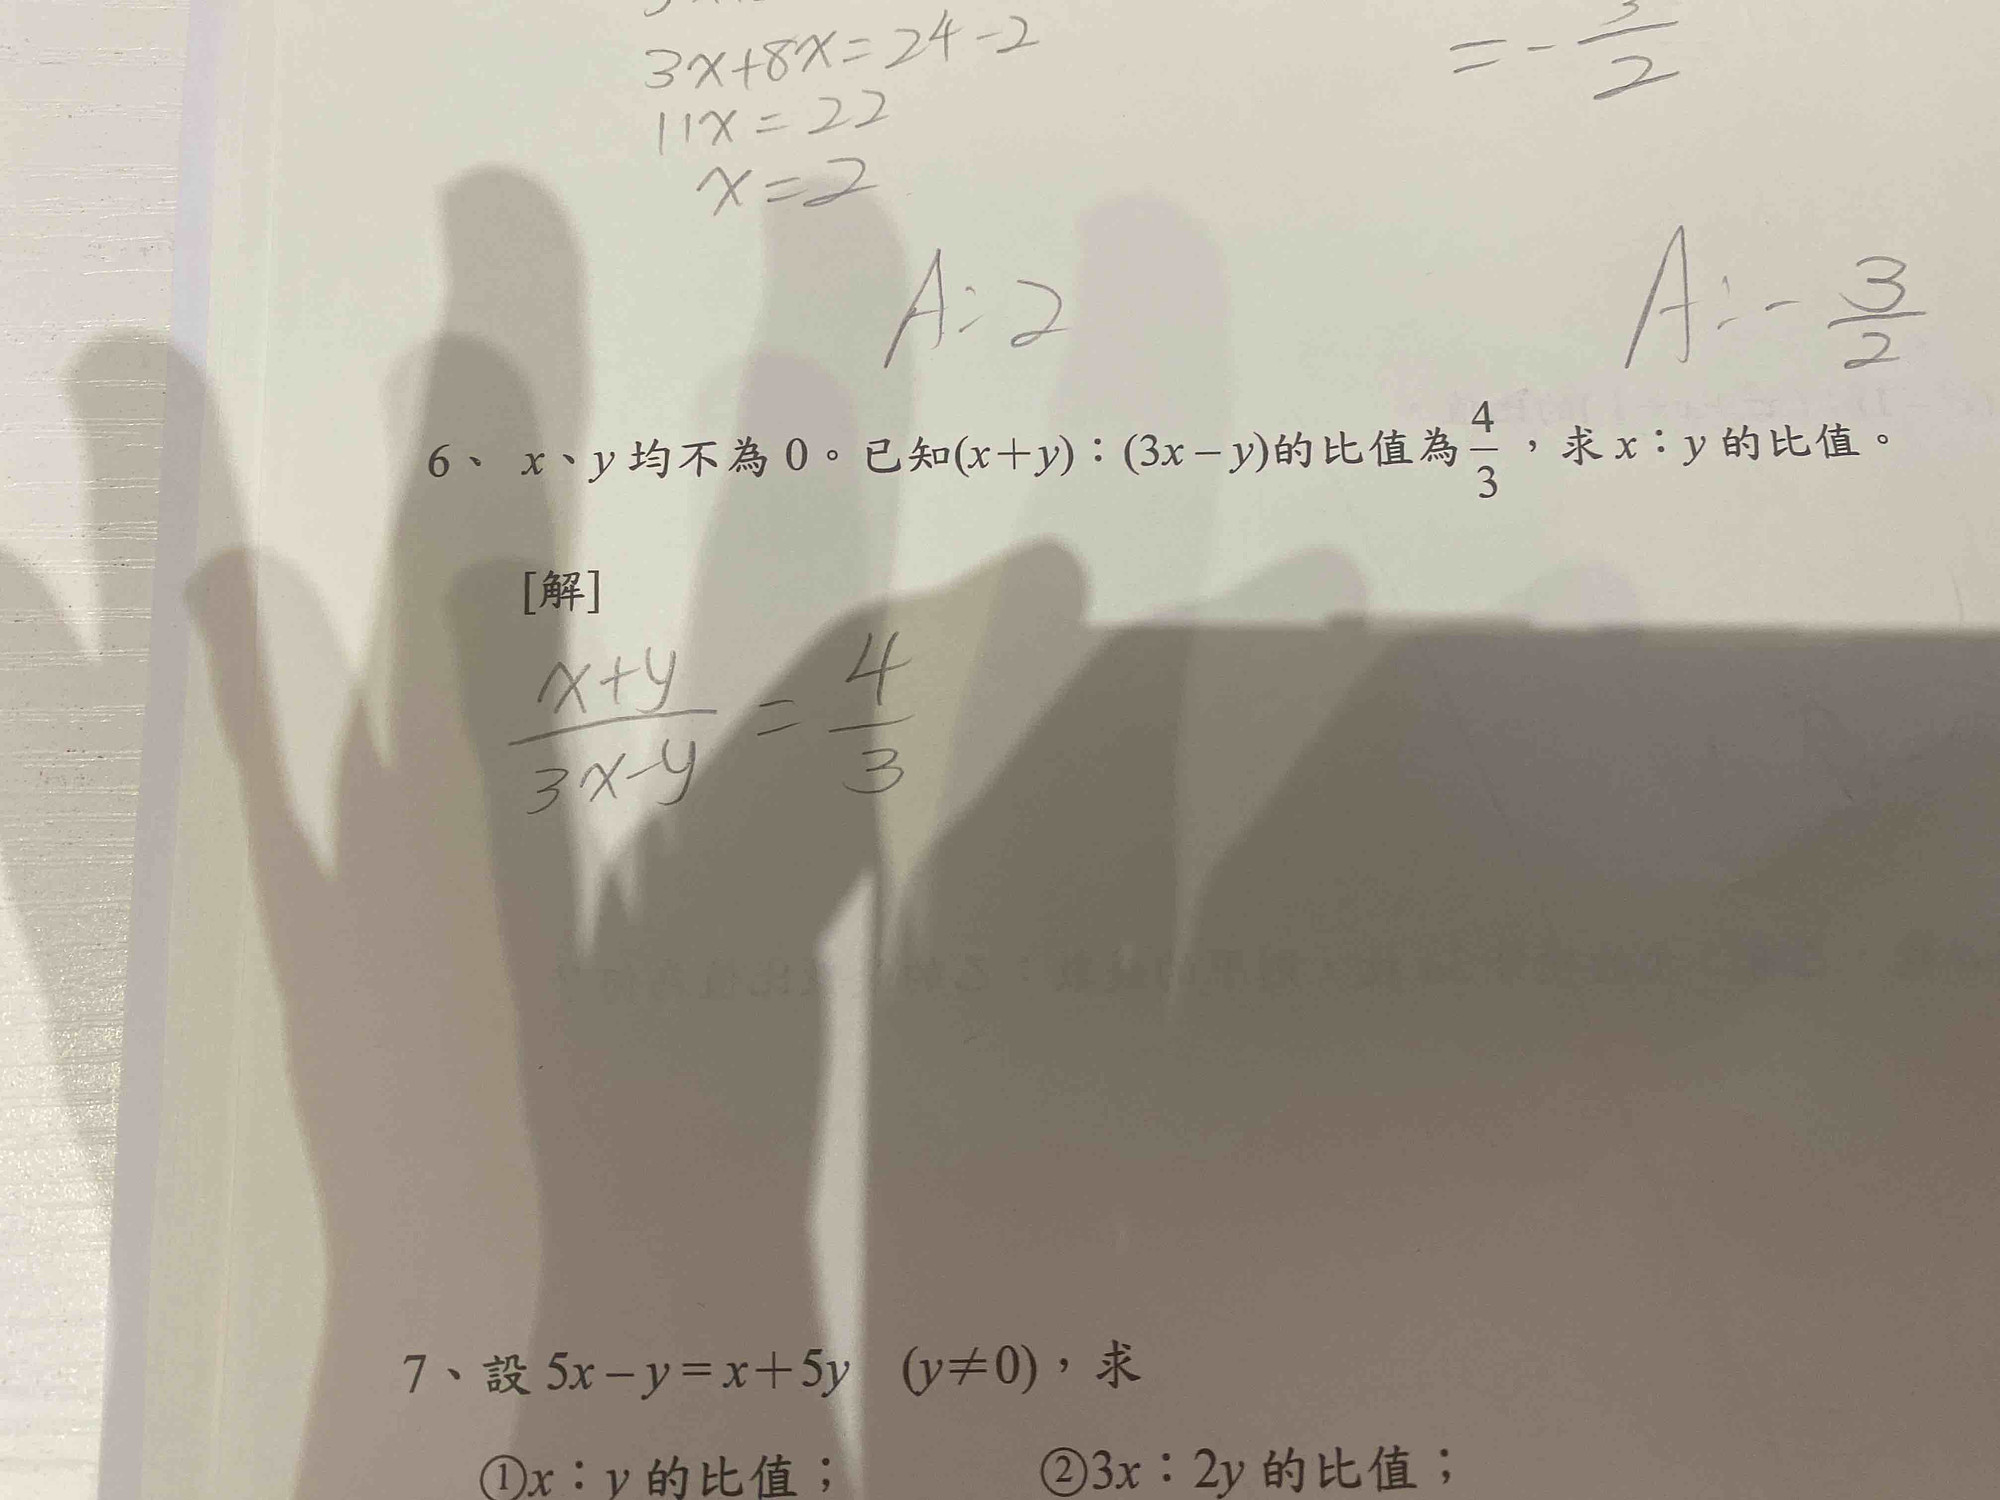 3x+8x=24-2
=-3/2
11x=22
x=2
A:2
A:-3/2
6、 x、y 均不為 0。已知(x+y)：(3x-y)的比值為4/3，求 x：y 的比值。
[解]
x+y/3x-y = 4/3
7、設 5x-y=x+5y (y≠0)，求
①x：y 的比值； ②3x：2y 的比值；